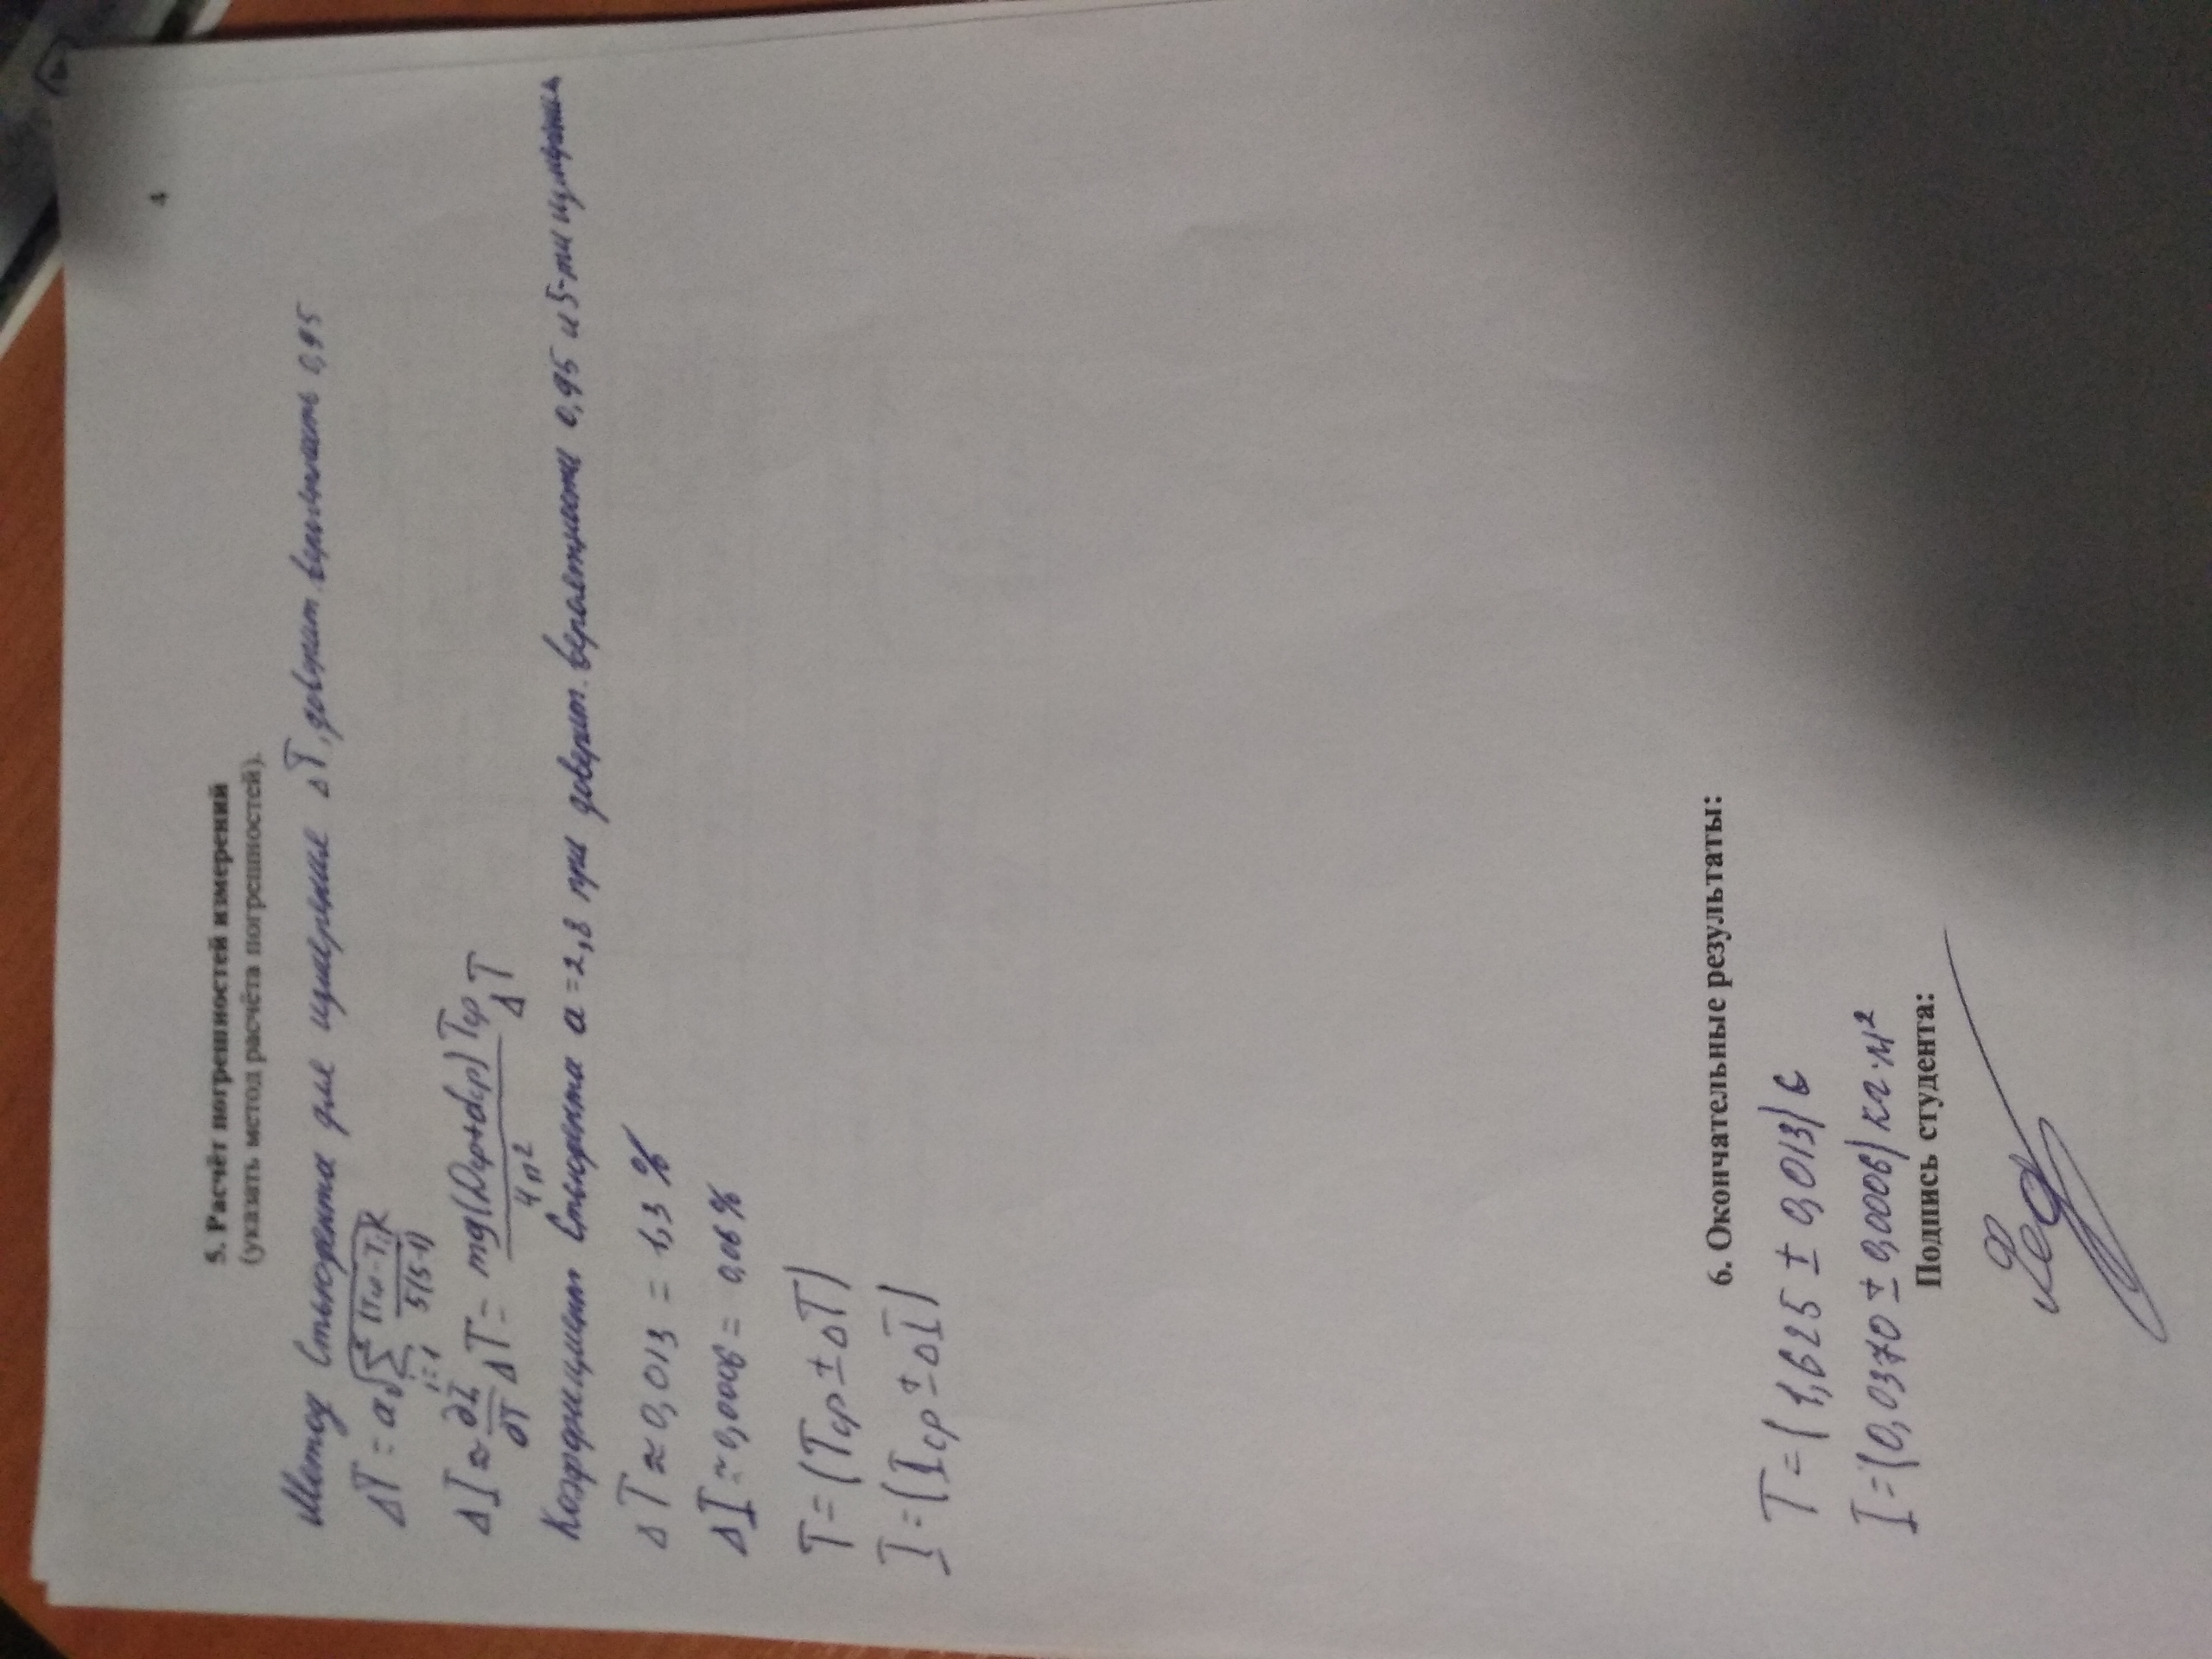 4
5. Расчёт погрешностей измерений
(указать метод расчёта погрешностей).
Метод Стьюдента для измерения ΔT, доверит. вероятность 0,95
ΔT = a√(∑ i=1 (Tср-Ti)² / 5(5-1))
ΔI ≈ ∂I/∂T ΔT = mg(Dср+dср)Tср / 4π² ΔT
Коэффициент Стьюдента a = 2,8 при доверит. вероятности 0,95 и 5-ти измерениях
ΔT ≈ 0,013 = 1,3 %
ΔI ≈ 0,0006 = 0,06 %
T = (Tср ± ΔT)
I = (Iср ± ΔI)
6. Окончательные результаты:
T = (1,625 ± 0,013) с
I = (0,0370 ± 0,0006) кг·м²
Подпись студента: